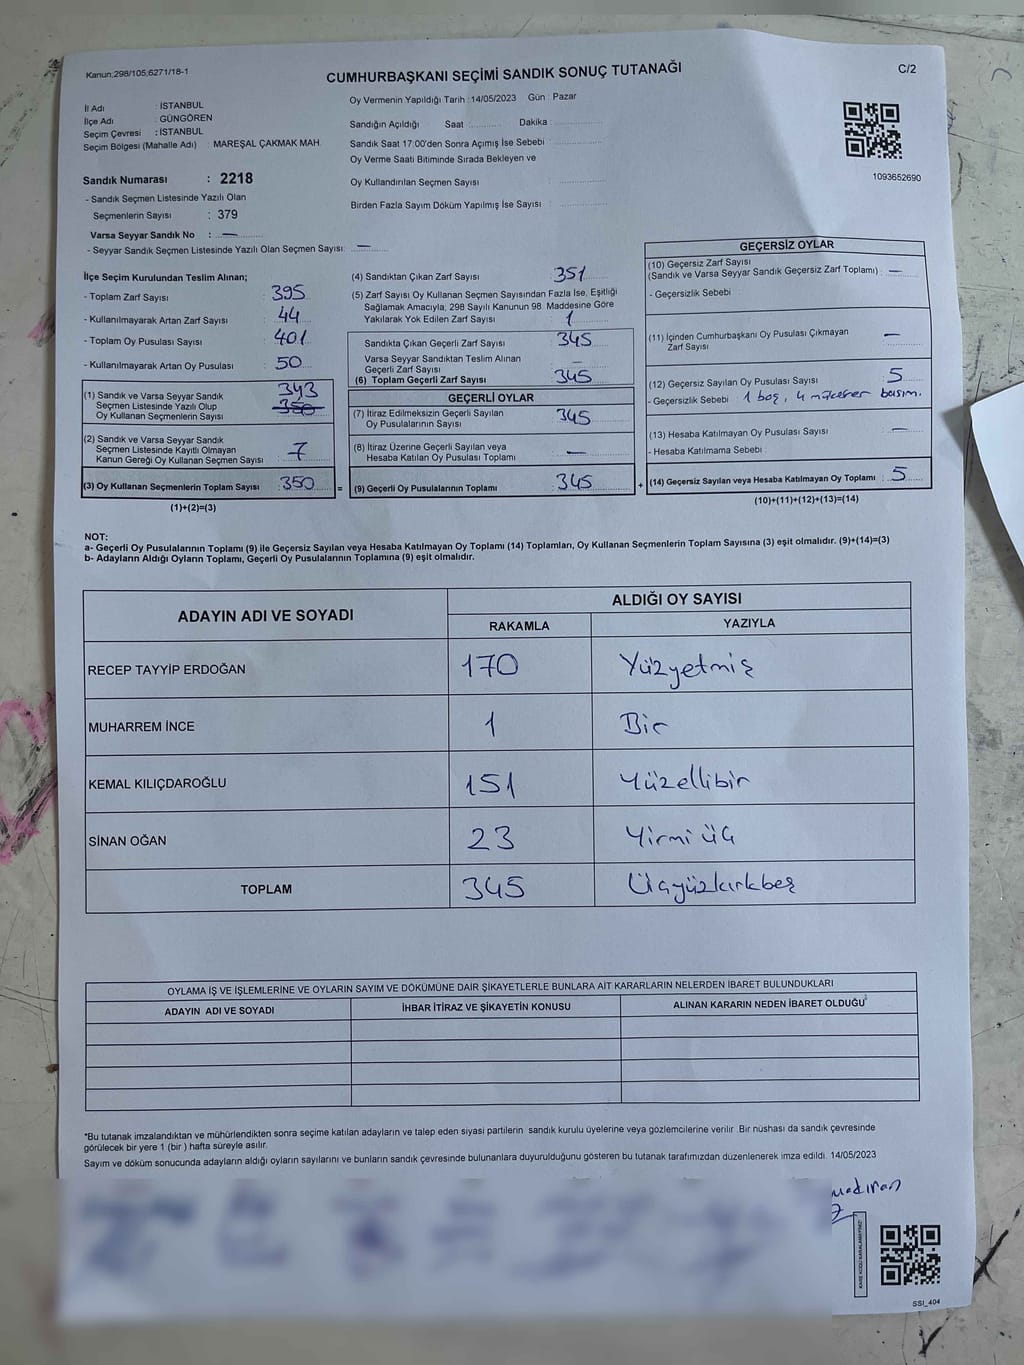 Kanun;298/105;6271/18-1
CUMHURBAŞKANI SEÇİMİ SANDIK SONUÇ TUTANAĞI
C/2
İl Adı : İSTANBUL
İlçe Adı : GÜNGÖREN
Seçim Çevresi : İSTANBUL
Seçim Bölgesi (Mahalle Adı) : MAREŞAL ÇAKMAK MAH.
Oy Vermenin Yapıldığı Tarih : 14/05/2023 Gün : Pazar
Sandığın Açıldığı Saat Dakika
Sandık Saat 17:00'den Sonra Açımış İse Sebebi
Oy Verme Saati Bitiminde Sırada Bekleyen ve
Oy Kullandırılan Seçmen Sayısı
Birden Fazla Sayım Döküm Yapılmış İse Sayısı
1093652690
Sandık Numarası : 2218
- Sandık Seçmen Listesinde Yazılı Olan
Seçmenlerin Sayısı : 379
Varsa Seyyar Sandık No : —
- Seyyar Sandık Seçmen Listesinde Yazılı Olan Seçmen Sayısı: —
İlçe Seçim Kurulundan Teslim Alınan;
- Toplam Zarf Sayısı : 395
- Kullanılmayarak Artan Zarf Sayısı : 44
- Toplam Oy Pusulası Sayısı : 401
- Kullanılmayarak Artan Oy Pusulası : 50
(1) Sandık ve Varsa Seyyar Sandık
Seçmen Listesinde Yazılı Olup
Oy Kullanan Seçmenlerin Sayısı
343
350
(2) Sandık ve Varsa Seyyar Sandık
Seçmen Listesinde Kayıtlı Olmayan
Kanun Gereği Oy Kullanan Seçmen Sayısı 7
(3) Oy Kullanan Seçmenlerin Toplam Sayısı : 350
(1)+(2)=(3)
=
(4) Sandıktan Çıkan Zarf Sayısı : 351
(5) Zarf Sayısı Oy Kullanan Seçmen Sayısından Fazla İse, Eşitliği
Sağlamak Amacıyla; 298 Sayılı Kanunun 98. Maddesine Göre
Yakılarak Yok Edilen Zarf Sayısı : 1
Sandıkta Çıkan Geçerli Zarf Sayısı : 345
Varsa Seyyar Sandıktan Teslim Alınan
Geçerli Zarf Sayısı : —
(6) Toplam Geçerli Zarf Sayısı : 345
GEÇERLİ OYLAR
(7) İtiraz Edilmeksizin Geçerli Sayılan
Oy Pusulalarının Sayısı : 345
(8) İtiraz Üzerine Geçerli Sayılan veya
Hesaba Katılan Oy Pusulası Toplamı : —
(9) Geçerli Oy Pusulalarının Toplamı : 345
+
GEÇERSİZ OYLAR
(10) Geçersiz Zarf Sayısı
(Sandık ve Varsa Seyyar Sandık Geçersiz Zarf Toplamı) : —
- Geçersizlik Sebebi :
(11) İçinden Cumhurbaşkanı Oy Pusulası Çıkmayan
Zarf Sayısı : —
(12) Geçersiz Sayılan Oy Pusulası Sayısı : 5
- Geçersizlik Sebebi : 1 boş, 4 mükerrer basım.
(13) Hesaba Katılmayan Oy Pusulası Sayısı : —
- Hesaba Katılmama Sebebi :
(14) Geçersiz Sayılan veya Hesaba Katılmayan Oy Toplamı : 5
(10)+(11)+(12)+(13)=(14)
NOT:
a- Geçerli Oy Pusulalarının Toplamı (9) ile Geçersiz Sayılan veya Hesaba Katılmayan Oy Toplamı (14) Toplamları, Oy Kullanan Seçmenlerin Toplam Sayısına (3) eşit olmalıdır. (9)+(14)=(3)
b- Adayların Aldığı Oyların Toplamı, Geçerli Oy Pusulalarının Toplamına (9) eşit olmalıdır.
ADAYIN ADI VE SOYADI
ALDIĞI OY SAYISI
RAKAMLA YAZIYLA
RECEP TAYYİP ERDOĞAN 170 Yüzyetmiş
MUHARREM İNCE 1 Bir
KEMAL KILIÇDAROĞLU 151 Yüzellibir
SİNAN OĞAN 23 Yirmi üç
TOPLAM 345 Üçyüzkırkbeş
OYLAMA İŞ VE İŞLEMLERİNE VE OYLARIN SAYIM VE DÖKÜMÜNE DAİR ŞİKAYETLERLE BUNLARA AİT KARARLARIN NELERDEN İBARET BULUNDUKLARI
ADAYIN ADI VE SOYADI İHBAR İTİRAZ VE ŞİKAYETİN KONUSU ALINAN KARARIN NEDEN İBARET OLDUĞU
*Bu tutanak imzalandıktan ve mühürlendikten sonra seçime katılan adayların ve talep eden siyasi partilerin sandık kurulu üyelerine veya gözlemcilerine verilir. Bir nüshası da sandık çevresinde
görülecek bir yere 1 (bir ) hafta süreyle asılır.
Sayım ve döküm sonucunda adayların aldığı oyların sayılarını ve bunların sandık çevresinde bulunanlara duyurulduğunu gösteren bu tutanak tarafımızdan düzenlenerek imza edildi. 14/05/2023
KARE KODU KARALAMAYINIZ!
SSİ_404